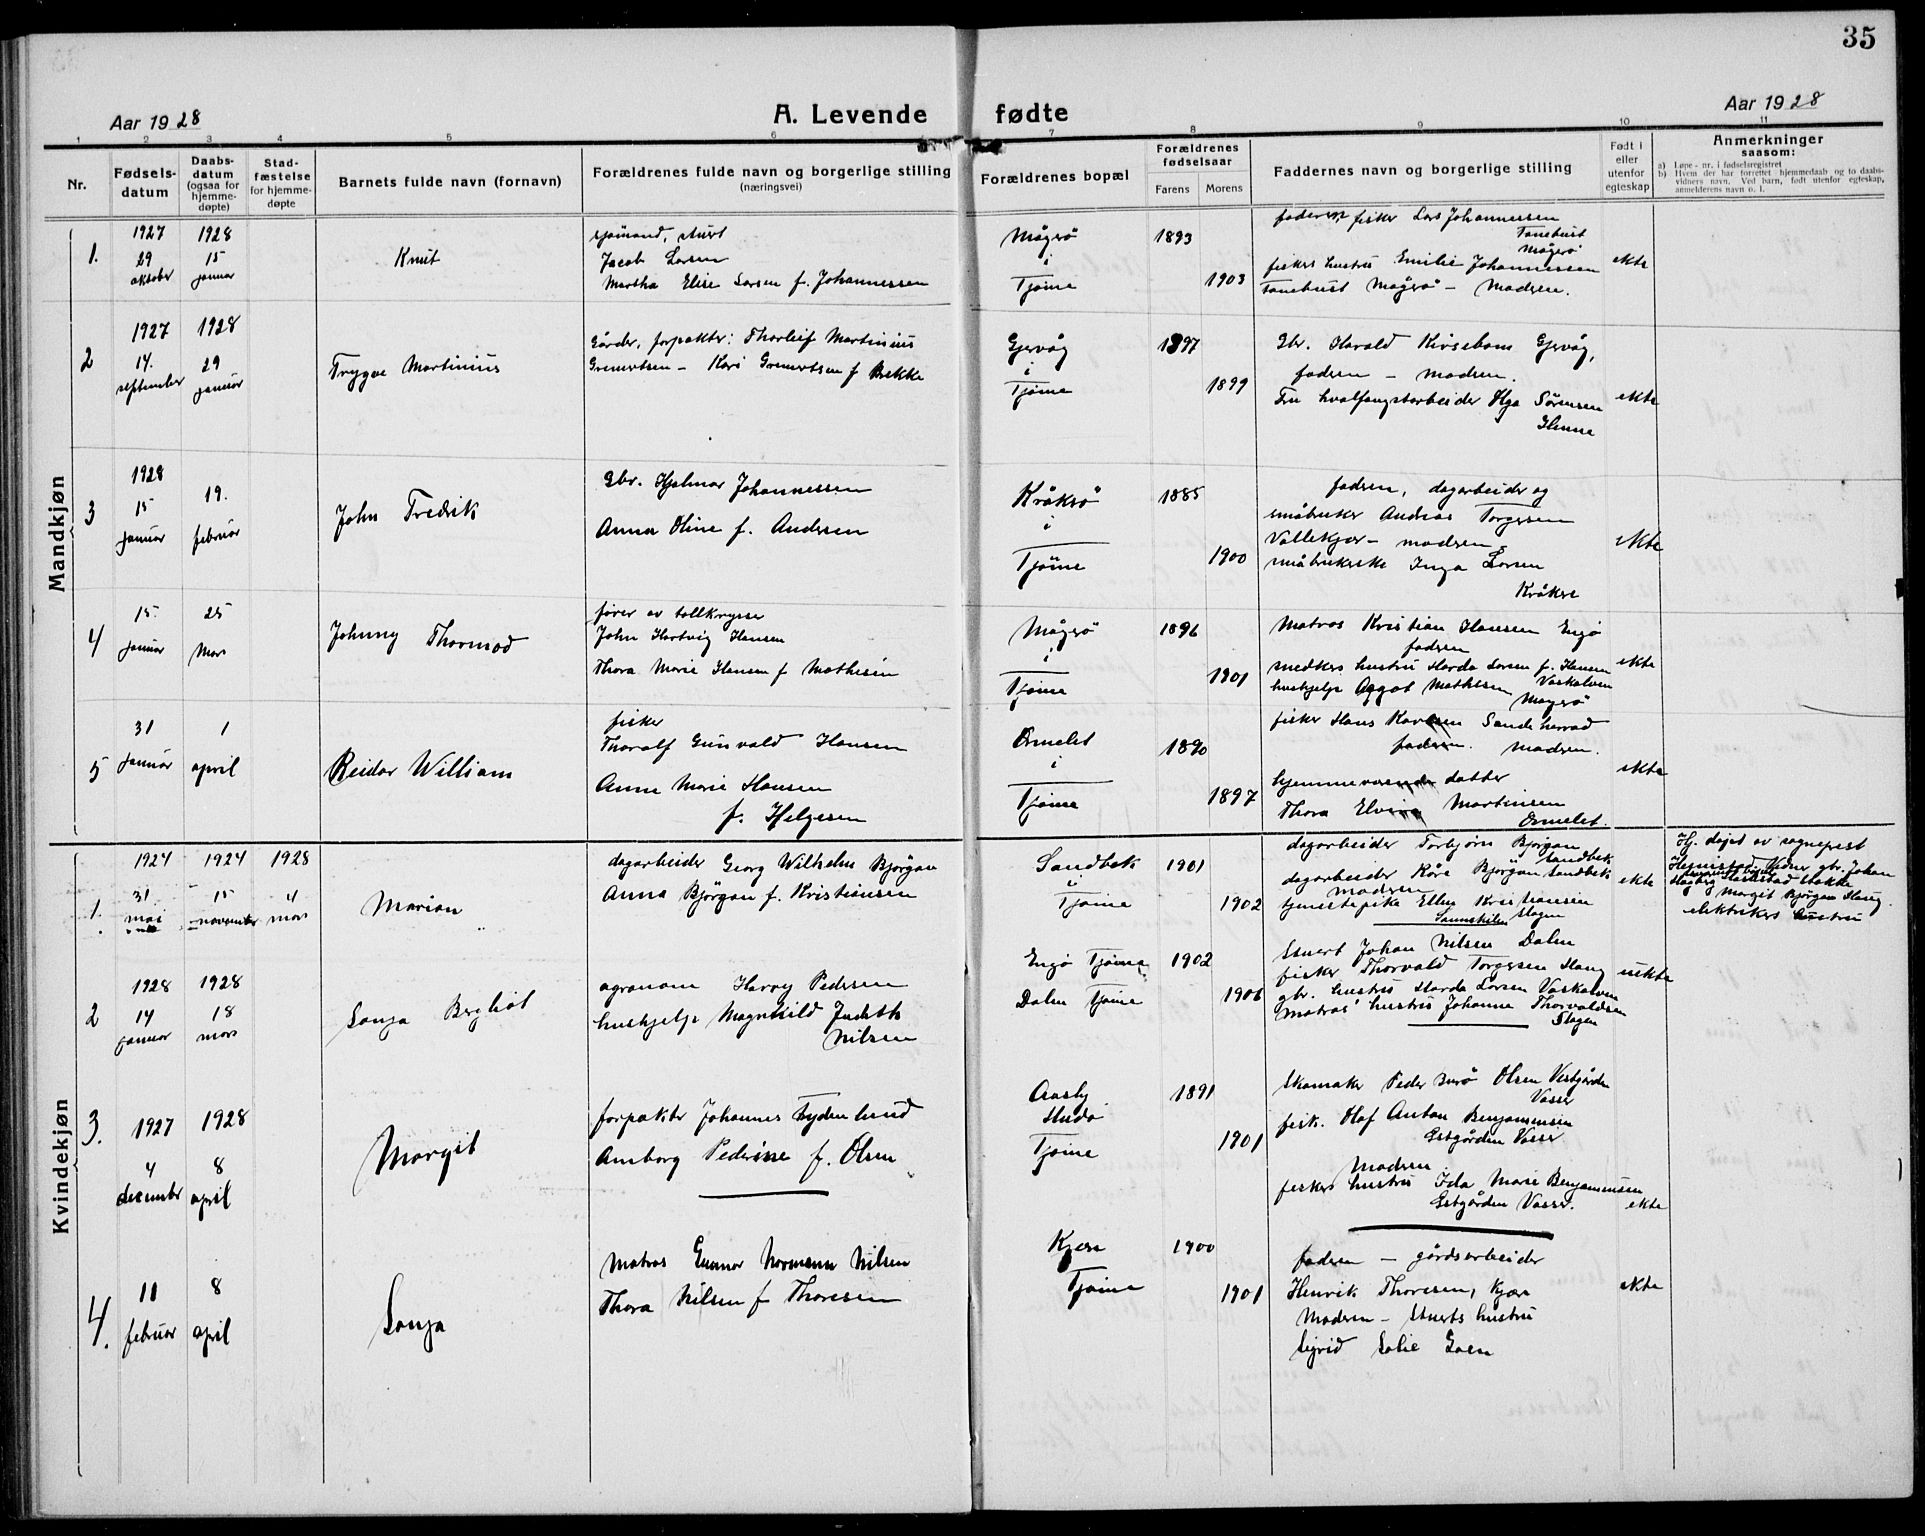 35
Aar 1928
A. Levende fødte
Aar 1928
1 2 3 4 5 6 7 8 9 10 11
Nr.
Fødsels-
datum
Daabs-
datum
(ogsaa for
hjemme-
døpte)
Stad-
fæstelse
for hjemme-
døpte
Barnets fulde navn (fornavn)
Forældrenes fulde navn og borgerlige stilling
(næringsvei)
Forældrenes bopæl
Forældrenes
fødselsaar
Farens Morens
Faddernes navn og borgerlige stilling
Født i
eller
utenfor
egteskap
Anmerkninger
saasom:
a) Løpe - nr. i fødselsregistret
b) Hvem der har forrettet hjemmedaab og to daabs-
vidners navn. Ved barn, født utenfor egteskap,
anmelderens navn o. l.
Mandkjøn
1.
1927
29
oktober
1928
15
januar
Knut
sjømand, stuert
Jacob Larsen
Martha Elise Larsen f. Johannessen
Magerø
i
Tjøme
1893
1903
faderen, fisker Lars Johannessen
Magerø
fiskers hustru Emilie Johannessen
Magerø - Modren.
ekte
2
1927
14.
september
1928
29
januar
Trygve Martinius
Gårdbr. forpakter: Thorleif Martinius
Grenertsen - Kari Grenertsen f Bekke
Gjervåg
i
Tjøme
1897
1899
Gbr. Harald Kirsebom Gjervåg,
fadren - modren.
Fru hvalfangstarbeider Olga Sørensen
ekte
3
1928
15
januar
19.
februar
John Fredrik
Gbr. Hjalmar Johannessen
Anna Oline f. Andersen
Kråkerø
i
Tjøme
1885
1900
fadren, dagarbeider og
småbruker Andreas Torgersen
Vallekjær - modren
småbrukerske Inga Larsen
Kråkere
ekte
4
15.
januar
25
Mars
Johnny Thormod
fører av tollkrysser
John Hartvig Hansen
Thora Marie Hansen f Mathisen
Magerø
i
Tjøme
1896
1901
Matros Kristian Hansen Engø
fadren
snedkers hustru Harda Larsen f. Hansen
Vaskalven
hushjelp Aggot Mathisen
Magerø
ekte
5
31
januar
1
april
Reidar William
fisker
Thoralf Gunvald Hansen
Anna Marie Hansen
f. Helgesen
Ormelet
i
Tjøme
1890
1897
fisker Hans Karlsen Sande herred
fadren. modren.
hjemmeværende datter
Thora Elvina Martinsen
Ormelet.
ekte
Kvindekjøn
1.
1924
31
mai
1924
15
november
1928
4
mars
Marian
dagarbeider Georg Wilhelm Bjørgan
Anna Bjørgan f. Kristiansen
Sandbek
i
Tjøme
1901
1902
dagarbeider Torbjørn Bjørgan
Sandbek
dagarbeider Kåre Bjørgan Sandbek
modren
tjenestepike Ellen Kristiansen
Slagen
ekte
Hj. døpt av sogneprest
gbr. Johan
Margit Bjørgan Haug.
elektrikers hustru
2
1928
14
januar
1928
18
mars
Sonja Bergliot
agronom Harry Pedersen
hushjelp Magnhild Judith
Nilsen
Engø Tjøme
Dalen Tjøme
1902
1906
Stuert Johan Nilsen Dalen
fisker Thorvald Torgersen Haug
gbr. hustru Harda Larsen Vaskalven
Matros' hustru Johanne Thorvaldsen
Slagen
uekte
3.
1927
4
desember
1928
8
april
Margit
forpakter Johannes Tydenlund
Amborg Pederine f. Olsen
Tjøme
1891
1901
Skomaker Peder Burø Olsen Vestgården
Vasser
fisk. Olaf Anton Benjaminsen
Estgården Vasser
Modren
fiskers hustru Ida Marie Benjaminsen
Estgården Vasser.
ekte
4.
11
februar
8
april
Sonja
Matros Gunnar Normann Nilsen
Thora Nilsen f Thoresen
Kjære
Tjøme
1900
1901
fadren - gårdsarbeider
Henrik Thoresen, Kjære
Modren - Stuerts hustru
Sigrid
ekte